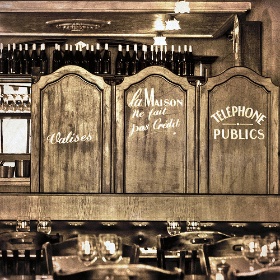 Valises
La Maison
ne fait
pas Crédit
TÉLÉPHONE
PUBLICS